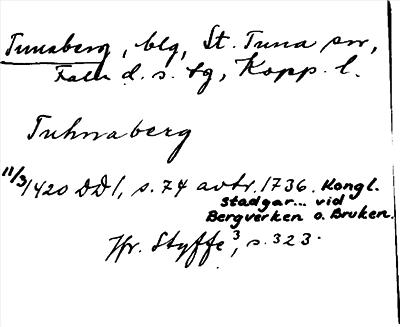 Tunaberg, blg, St. Tuna sn,
Falu d. s. tg, Kopp. l.
Tuhnaberg
11/3 1420 DD 1, s. 74 avtr. 1736. Kongl.
stadgar... vid
Bergverken o. Bruken.
Jfr. Styffe 3, s. 323.